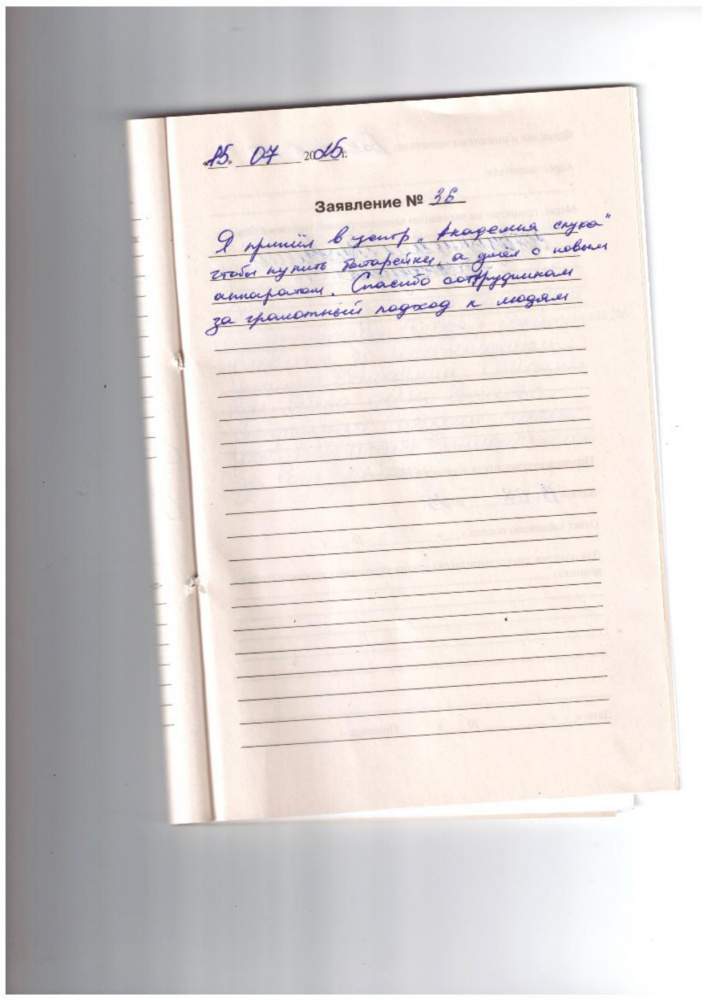 «15» 07 2015г.
Заявление № 36
Я пришёл в центр „Академия слуха"
чтобы купить батарейки, а ушёл с новым
аппаратом. Спасибо сотрудникам
за грамотный подход к людям